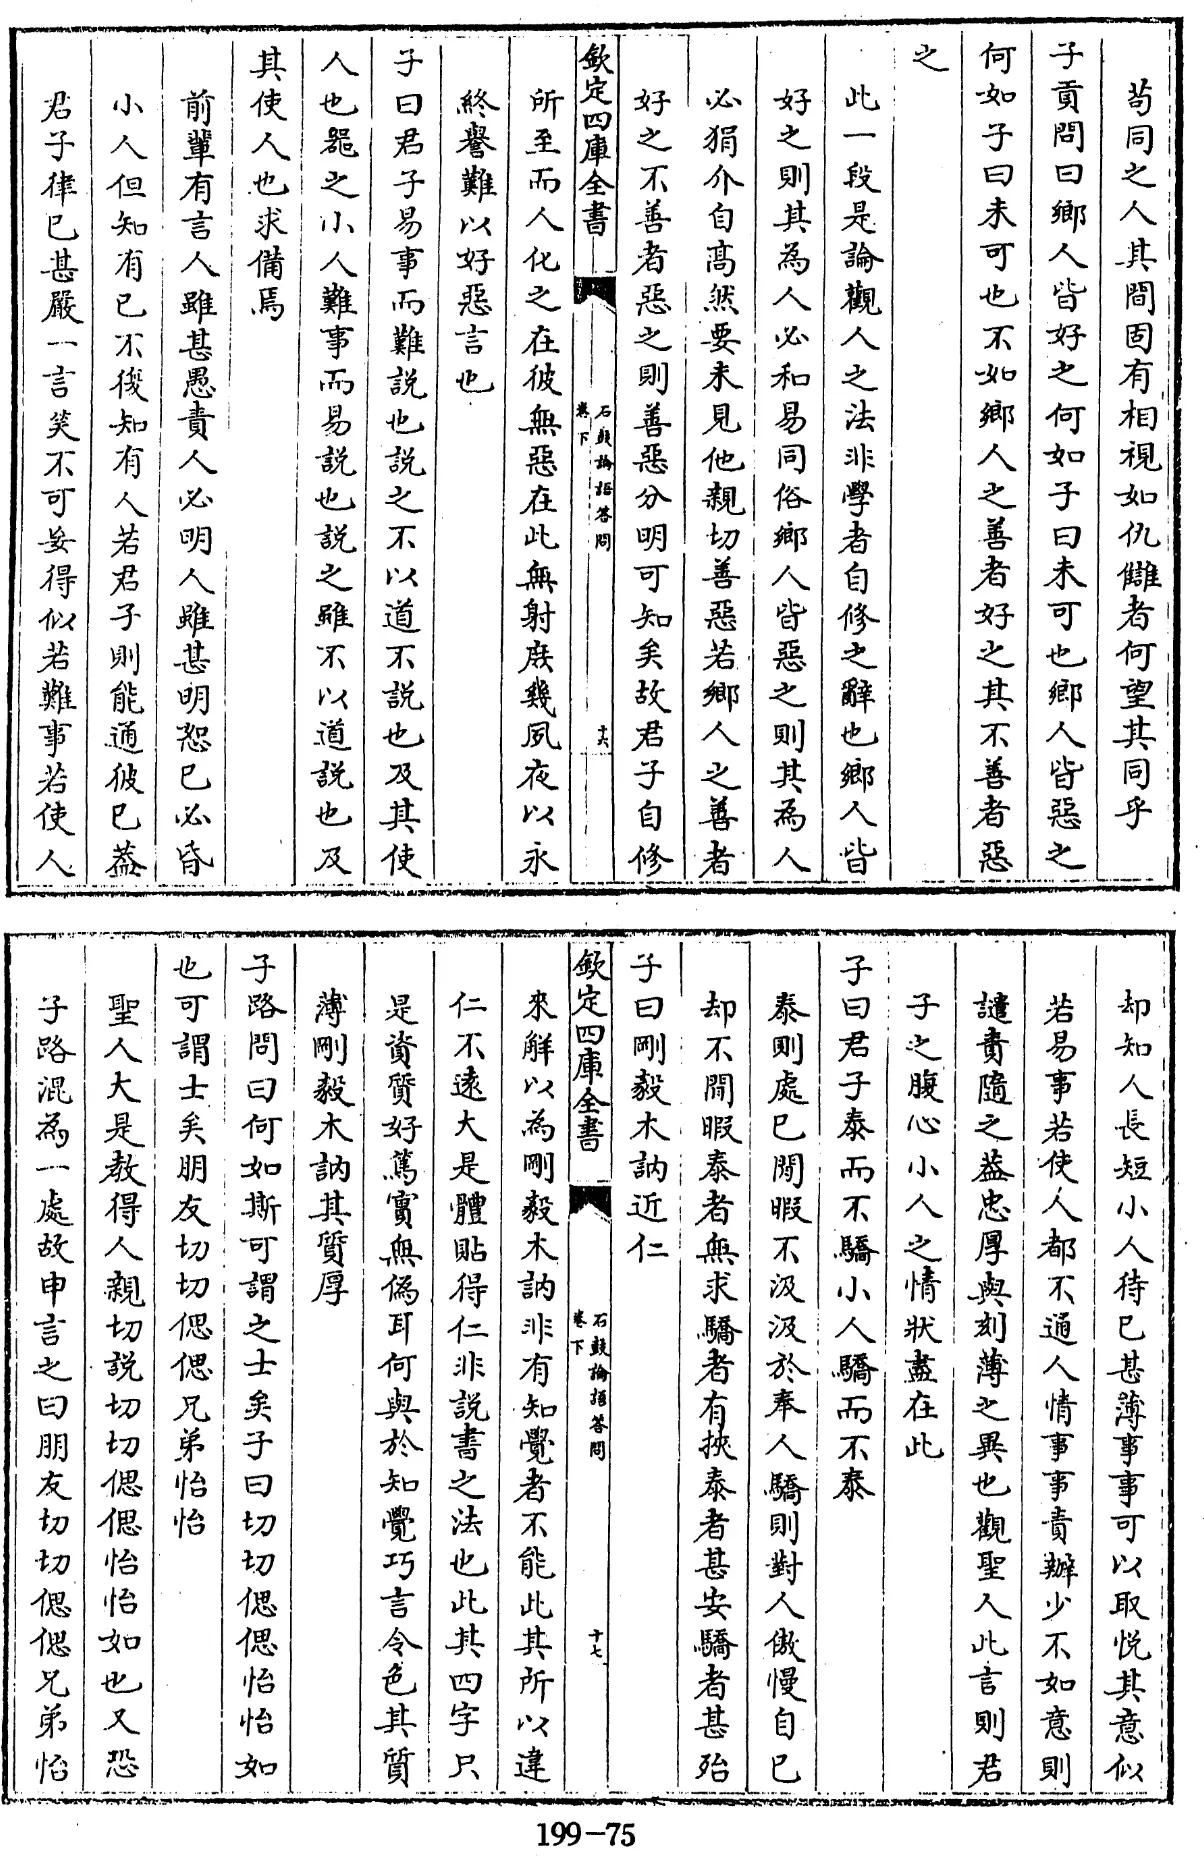 苟同之人其間固有相視如仇讎者何望其同乎
子貢問曰鄉人皆好之何如子曰未可也鄉人皆惡之
何如子曰未可也不如鄉人之善者好之其不善者惡
之
此一段是論觀人之法非學者自修之辭也鄉人皆
好之則其為人必和易同俗鄉人皆惡之則其為人
必狷介自髙然要未見他親切善惡若鄉人之善者
好之不善者惡之則善惡分明可知矣故君子自修
欽定四庫全書
石鼓論語答問
卷下
十六
所至而人化之在彼無惡在此無射庶幾夙夜以永
終譽難以好惡言也
子曰君子易事而難説也説之不以道不説也及其使
人也器之小人難事而易説也説之雖不以道説也及
其使人也求備焉
前輩有言人雖甚愚責人必明人雖甚明恕已必昏
小人但知有已不復知有人若君子則能通彼已葢
君子律已甚嚴一言笑不可妄得似若難事若使人
却知人長短小人待已甚薄事事可以取悦其意似
若易事若使人都不通人情事事責辦少不如意則
譴責隨之葢忠厚與刻薄之異也觀聖人此言則君
子之腹心小人之情狀盡在此
子曰君子泰而不驕小人驕而不泰
泰則處已閒暇不汲汲於奉人驕則對人傲慢自已
却不閒暇泰者無求驕者有挾泰者甚安驕者甚殆
子曰剛毅木訥近仁
欽定四庫全書
石鼓論語答問
卷下
十七
來解以為剛毅木訥非有知覺者不能此其所以違
仁不逺大是體貼得仁非説書之法也此其四字只
是資質好篤實無偽耳何與於知覺巧言令色其質
薄剛毅木訥其質厚
子路問曰何如斯可謂之士矣子曰切切偲偲怡怡如
也可謂士矣朋友切切偲偲兄弟怡怡
聖人大是教得人親切説切切偲偲怡怡如也又恐
子路混為一處故申言之曰朋友切切偲偲兄弟怡
199-75